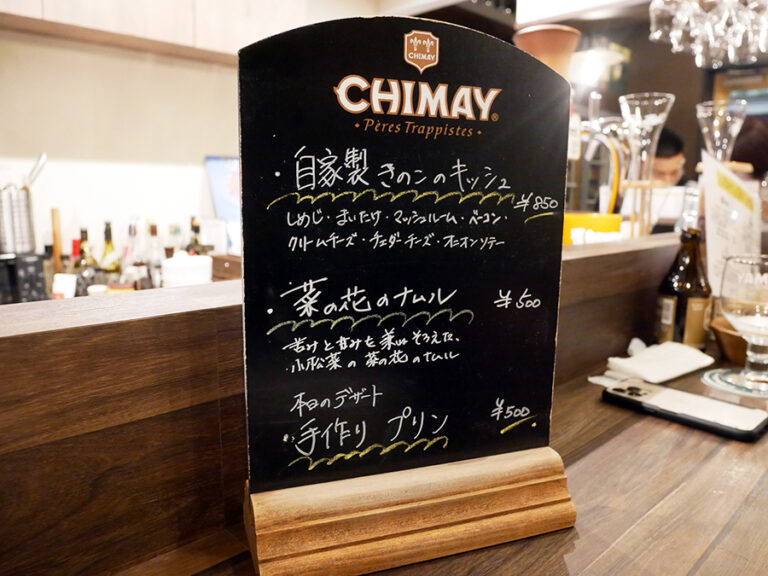 CHIMAY
CHIMAY®
Pères Trappistes
・自家製 きのこのキッシュ
¥850
しめじ・まいたけ・マッシュルーム・ベーコン・
クリームチーズ・チェダーチーズ・オニオンソテー
・菜の花のナムル ¥500
苦みと甘みを兼ねそろえた、
小松菜の菜の花のナムル
本日のデザート
・手作り プリン ¥500
YAM